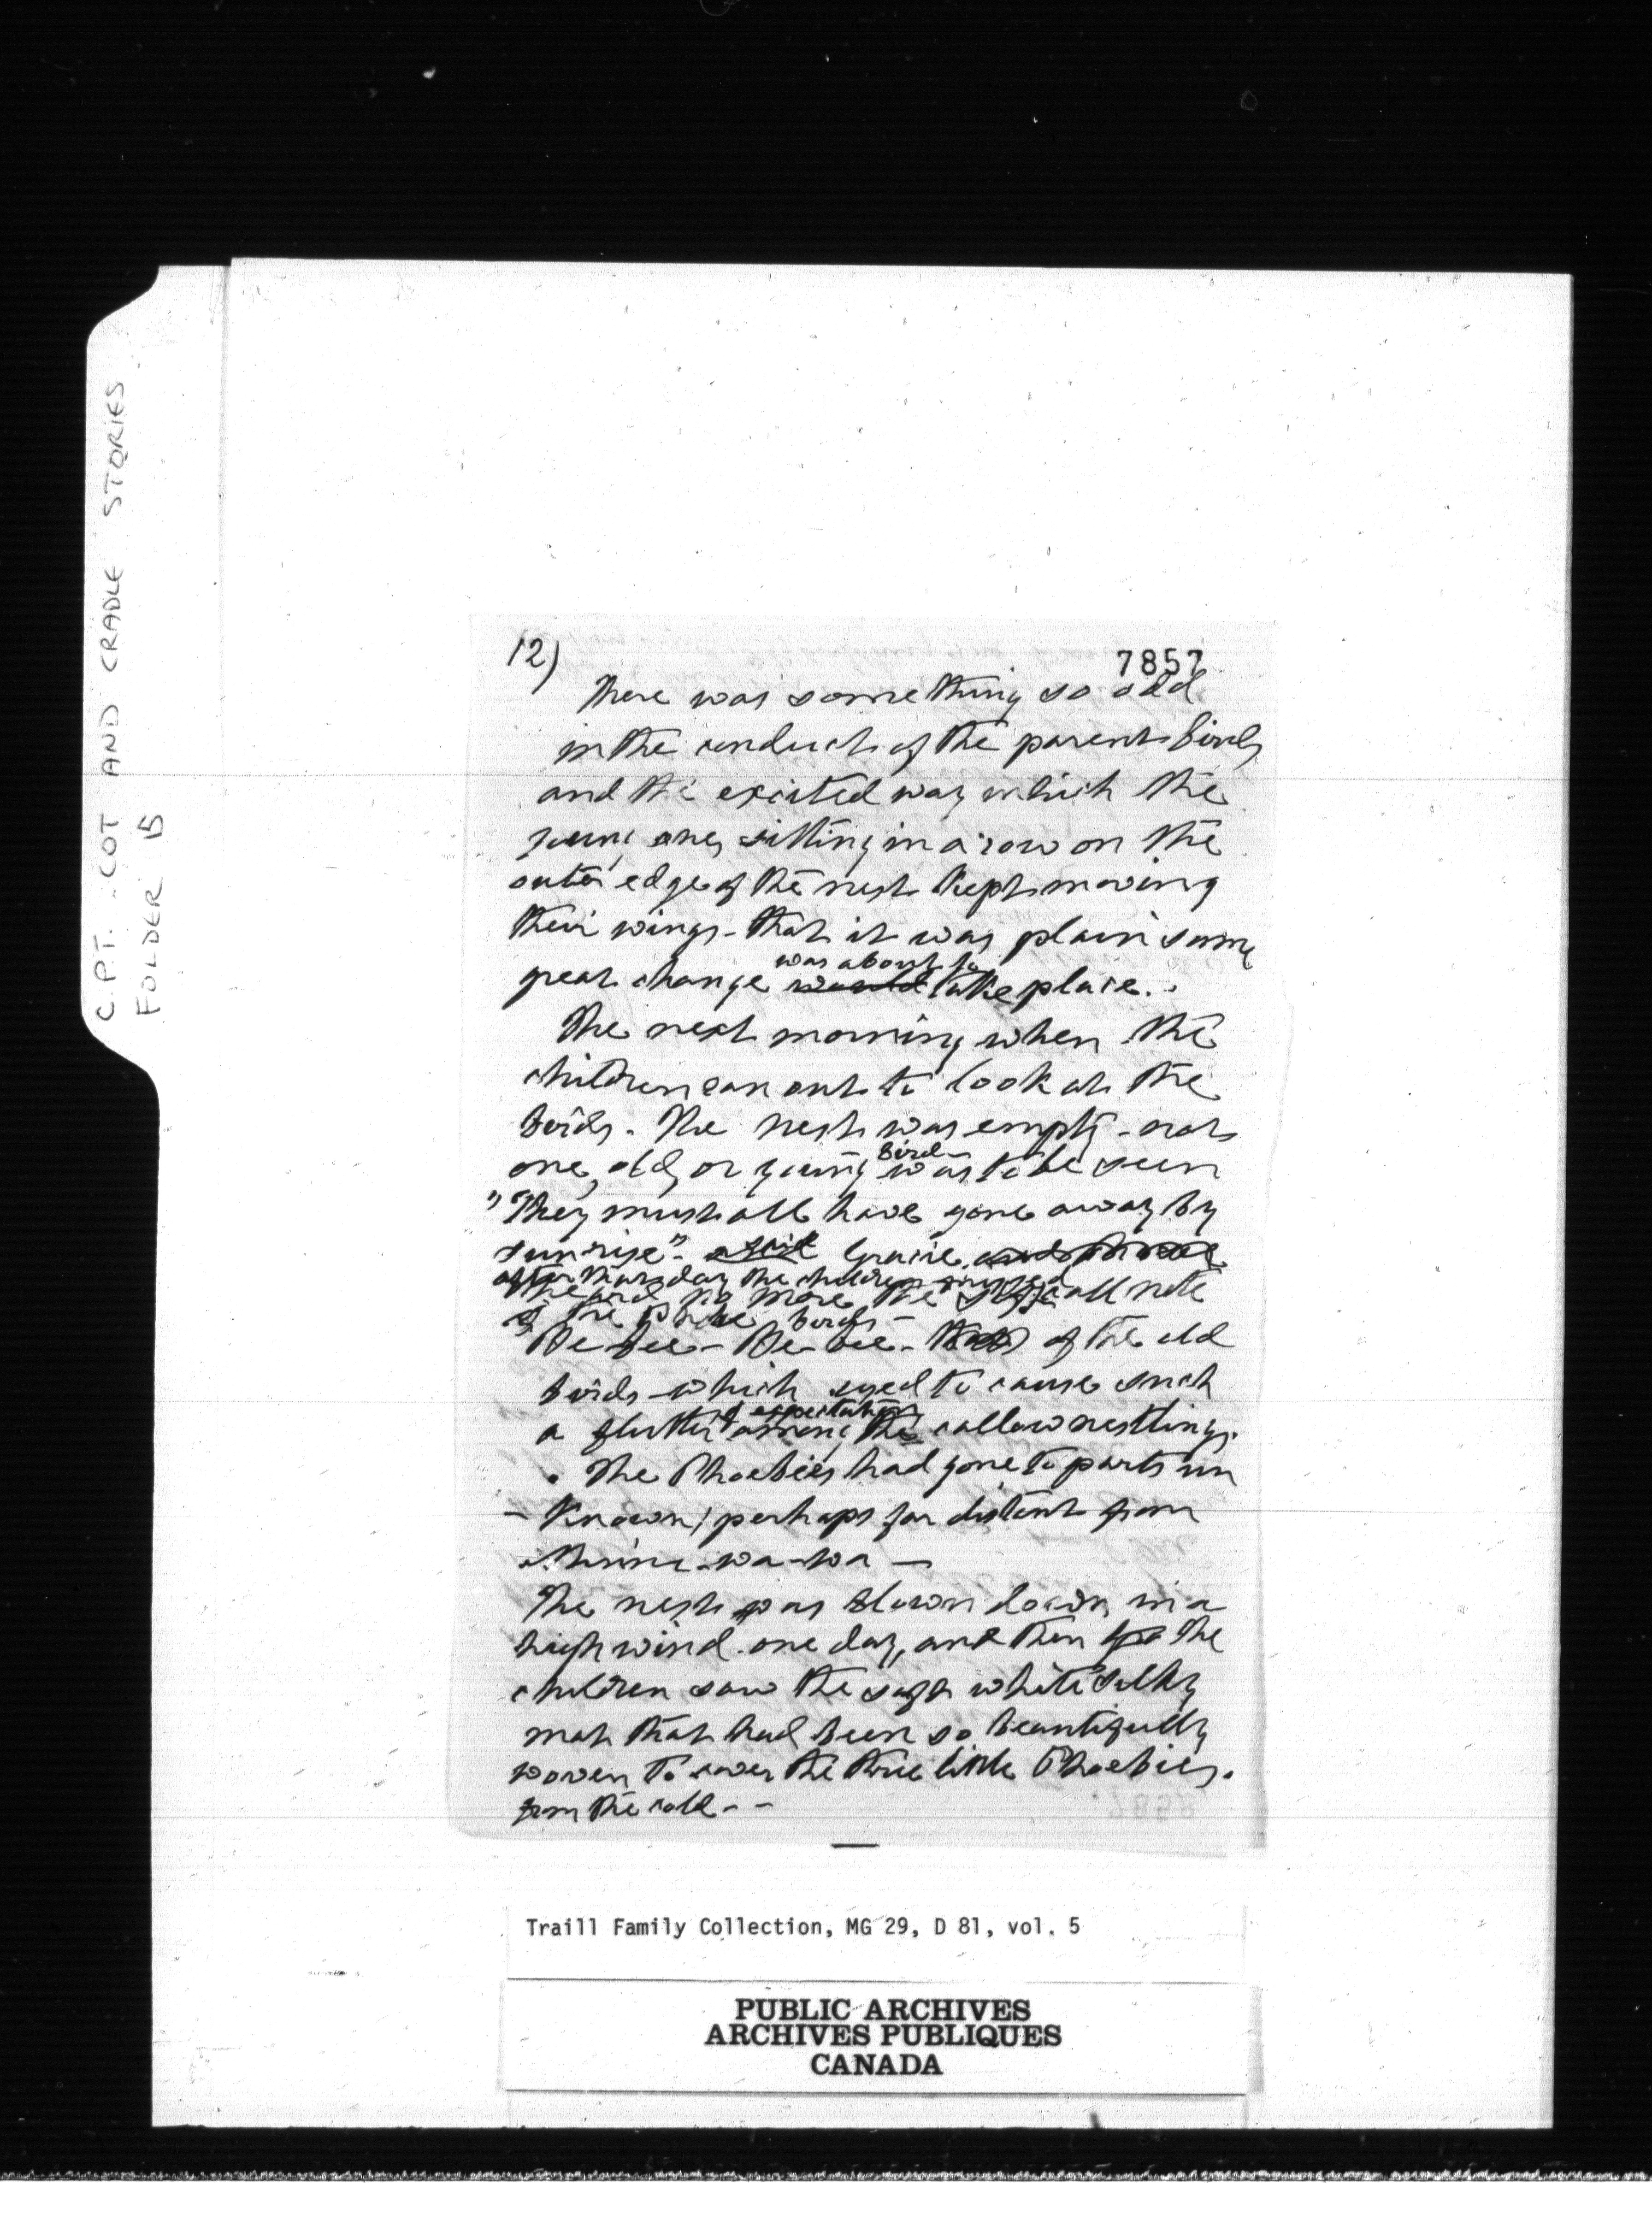 C.P.T. COT AND CRADLE STORIES
FOLDER 15
12)
7857
There was something so odd
in the conduct of the parent birds
and the excited way which the
young ones sitting in a row on the
outer edge of the nest kept moving
their wings - that it was plain some
was about to
great change would take place.
The next morning when the
children ran out to look at the
birds. The nest was empty - not
bird
one, old, or young was to be seen
"They must all have gone away by
sunrise" - said Gracie
after that day the children
heard no more the call note
of the Phoebe birds -
Be-bee - Be-bee - of the old
birds which used to cause such
of expectation
a flutter among the callow nestlings.
The Phoebies had gone to parts un
- known, perhaps far distant from
Minne-wa-wa -
The nest was blown down in a
high wind one day, and then the
children saw the soft white silky
mat that had been so beautifully
woven to cover the three little Phoebies.
from the cold - -
Traill Family Collection, MG 29, D 81, vol. 5
PUBLIC ARCHIVES
ARCHIVES PUBLIQUES
CANADA